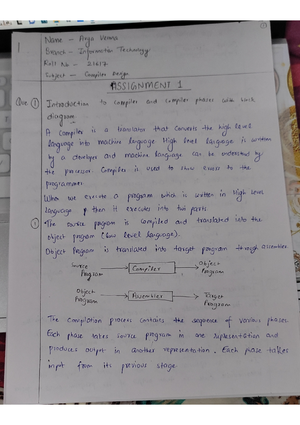 Name - Arya Verma
Branch - Information Technology
Roll No - 21617
Subject - Compiler Design
ASSIGNMENT 1
Que ① Introduction to Compiler and Compiler phases with each
diagram
A Compiler is a translator that converts the high level
language into machine language. High level language is written
by a developer and machine language can be understood by
the processor. Compiler is used to show errors to the
programmer.
When we execute a program which is written in High level
language then it executes into two parts
① The source program is compiled and translated into the
object program (low level language).
Object Program is translated into target program through assembler
Source Program → Compiler → Object Program
Object Program → Assembler → Target Program
The Compilation process contains the sequence of various phases.
Each phase takes source program in one representation and
produces output in another representation. Each phase takes
input from its previous stage.